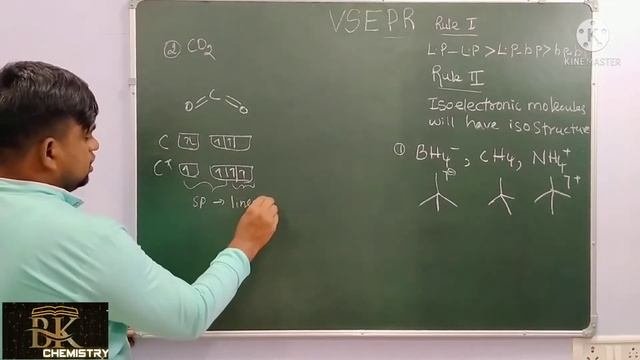 VSEPR
Rule I
L.P-L.P > L.P-b.p > b.p-b.
Rule II
Isoelectronic molecules
will have isostructure
① BH4⁻, CH4, NH4⁺
② CO2
O=C=O
C
C*
sp → line
KINEMASTER
BK
CHEMISTRY